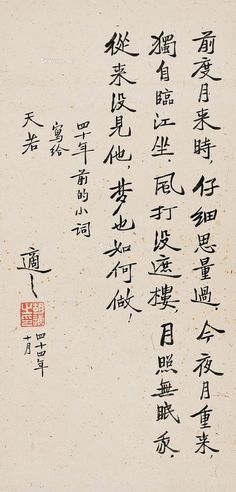 前度月来時，仔細思量過，今夜月重来
獨自臨江坐．風打没遮樓，月照無眠我，
從来没見他，梦也如何做！
四十年前的小詞
寫給
天若
適之
四十四年
十月